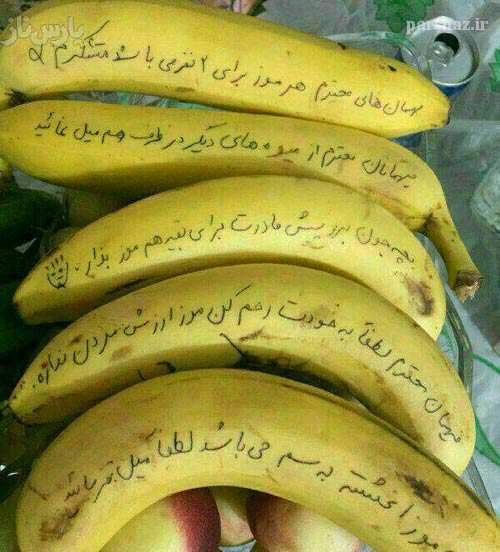 پارس ناز
parsnaz.ir
مهمان های محترم هر موز برای ۲ نفر می باشد متشکرم
میهمانان محترم از میوه های دیگر در ظرف هم میل نمائید
بچه جون برو پیش مادرت برای بقیه هم موز بذار.
میهمان محترم لطفاً به خودت رحم کن موز ارزش مردن نداره.
موز آغشته به سم می باشد لطفا میل نفرمائید